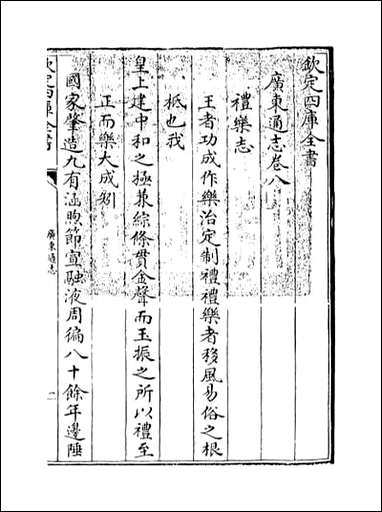 欽定四庫全書
廣東通志卷八
禮樂志
王者功成作樂治定制禮禮樂者移風易俗之根
柢也我
皇上建中和之極兼綜條貫金聲而玉振之所以禮至
正而樂大成矧
國家肇造九有涵煦節宣融液周徧八十餘年邊陲
欽定四庫全書
廣東通志
一